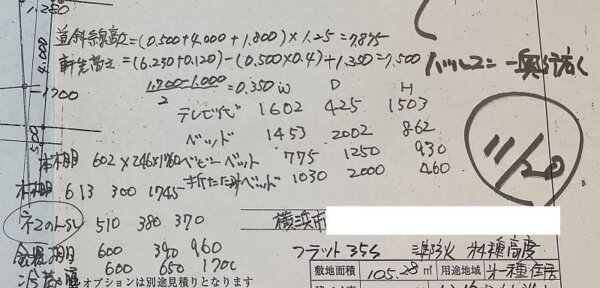 1.250
道斜線高之=(0.500+4.000+1.800)×1.25=7.875
4.000
軒先高之=(6.230+0.120)-(0.500×0.4)+1.350=7.500
バルコニー奥行広く
1.700-1.000
2
=0.350
W D H
1700
テレビ台 1602 425 1503
ベッド 1453 2002 862
11/20
本棚 602×246×1760
ベビーベット 775 1250 930
本棚 613 300 1745
折たたみベッド 1030 2000 460
ネコのトイレ 510 380 370
横浜市
食器棚 600 390 960
フラット35S 準防火 第4種高度
冷蔵庫 600 650 1700
オプションは別途見積りとなります
敷地面積 105.28㎡ 用途地域 第一種住居